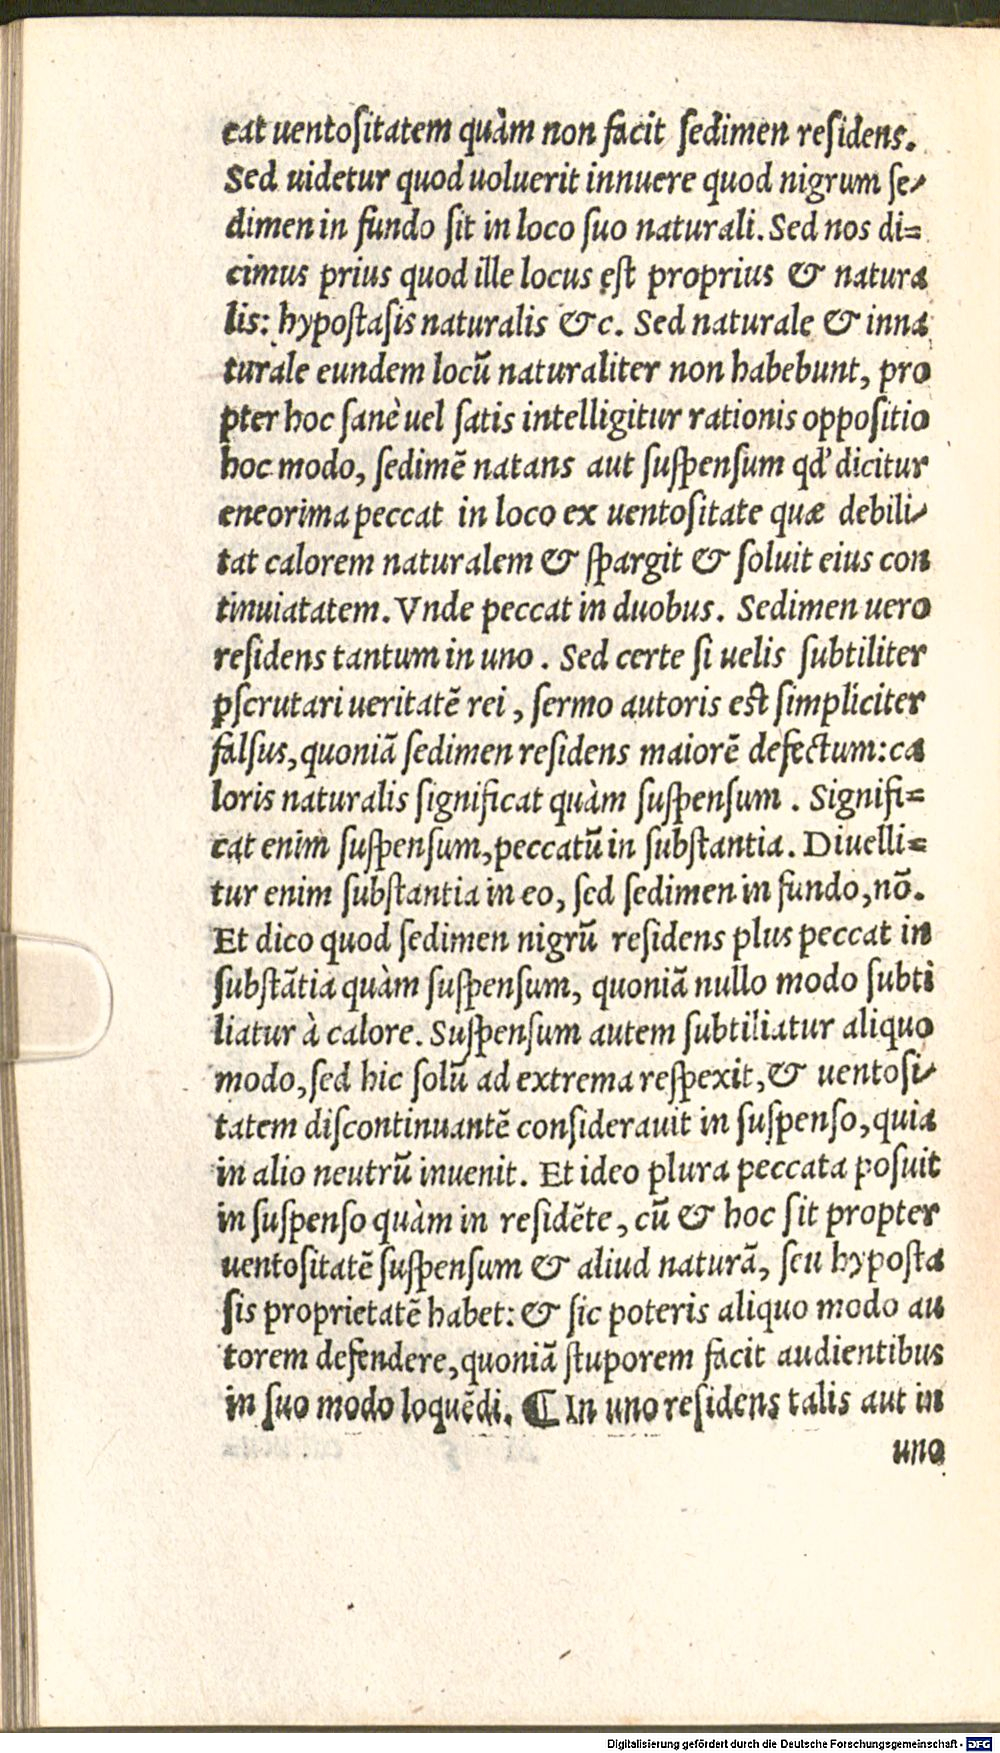 cat uentoſitatem quàm non facit ſedimen reſidens.
Sed uidetur quod uoluerit innuere quod nigrum ſe⸗
dimen in fundo ſit in loco ſuo naturali. Sed nos di⸗
cimus prius quod ille locus eſt proprius & natura
lis: hypoſtaſis naturalis &c. Sed naturale & inna
turale eundem locũ naturaliter non habebunt, pro
pter hoc ſanè uel ſatis intelligitur rationis oppoſitio
hoc modo, ſedimẽ natans aut ſuſpenſum qd' dicitur
eneorima peccat in loco ex uentoſitate quæ debili⸗
tat calorem naturalem & ſpargit & ſoluit eius con
tinuiatatem. Vnde peccat in duobus. Sedimen uero
reſidens tantum in uno. Sed certe ſi uelis ſubtiliter
pſcrutari ueritatẽ rei, ſermo autoris eſt ſimpliciter
falſus, quoniã ſedimen reſidens maiorẽ defectum: ca
loris naturalis ſignificat quàm ſuſpenſum. Signifi⸗
cat enim ſuſpenſum, peccatũ in ſubſtantia. Diuelli⸗
tur enim ſubſtantia in eo, ſed ſedimen in fundo, nõ.
Et dico quod ſedimen nigrũ reſidens plus peccat in
ſubſtãtia quàm ſuſpenſum, quoniã nullo modo ſubti
liatur à calore. Suſpenſum autem ſubtiliatur aliquo
modo, ſed hic ſolũ ad extrema reſpexit, & uentoſi⸗
tatem diſcontinuantẽ conſiderauit in ſuſpenſo, quia
in alio neutrũ inuenit. Et ideo plura peccata poſuit
in ſuſpenſo quàm in reſidẽte, cũ & hoc ſit propter
uentoſitatẽ ſuſpenſum & aliud naturã, ſeu hypoſta
ſis proprietatẽ habet: & ſic poteris aliquo modo au
torem defendere, quoniã ſtuporem facit audientibus
in ſuo modo loquẽdi. ¶ In uno reſidens talis aut in
uno
Digitalisierung gefördert durch die Deutsche Forschungsgemeinschaft - DFG